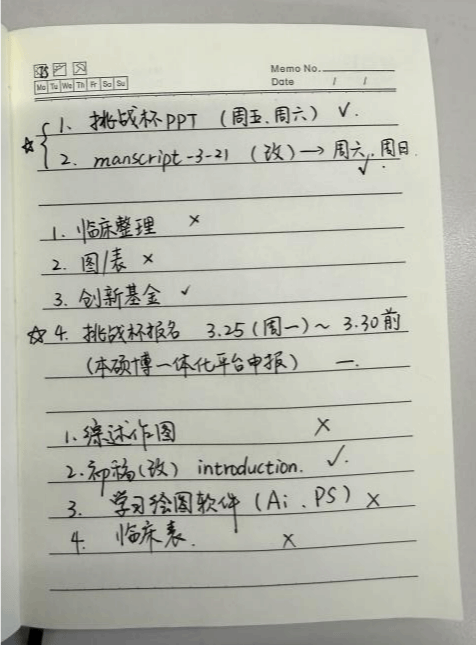 Memo No.
Mo Tu We Th Fr Sa Su
Date / /
☆ 1. 挑战杯PPT (周五、周六) ✓.
2. manscript-3-21 (改) → 周六、周日. ✓
1. 临床整理 ×
2. 图/表 ×
3. 创新基金 ✓
☆ 4. 挑战杯报名 3.25(周一)~ 3.30前
(本硕博一体化平台申报) 一.
1. 综述作图 ×
2. 初稿(改) introduction. ✓.
3. 学习绘图软件 (Ai、PS) ×
4. 临床表. ×